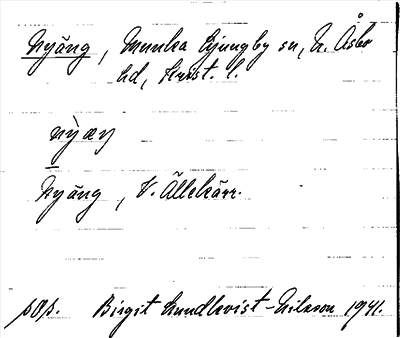 Nyäng, Munka Ljungby sn, N. Åsbo
hd, Krist. l.
nỳæŋ
Nyäng, V. Ällekärr.
pop. Birgit Lundkvist-Nilsson 1941.